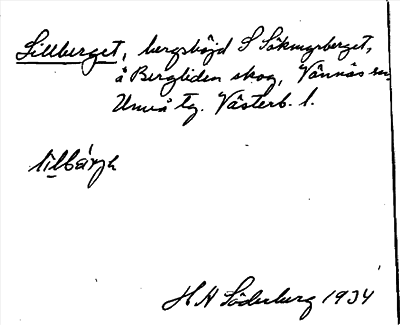 Lillberget, bergshöjd S Sökmyrberget,
å Bergliden skog, Vännäs sn,
Umeå tg. Västerb. l.
H A Söderberg 1934